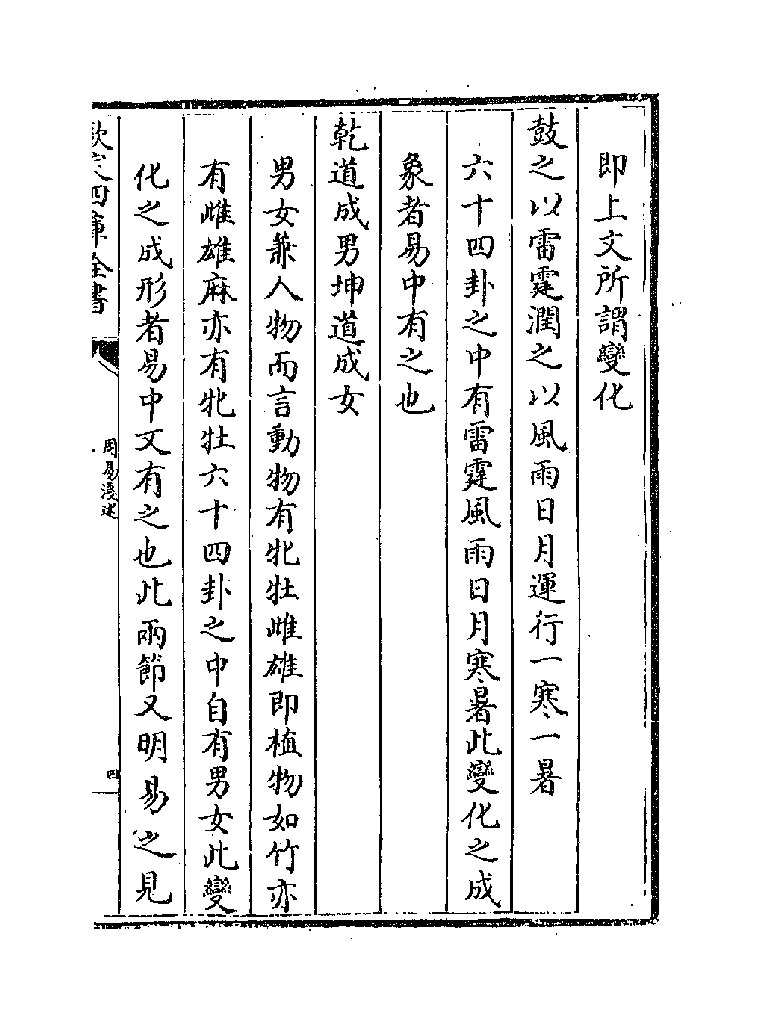 即上文所謂變化
鼓之以雷霆潤之以風雨日月運行一寒一暑
六十四卦之中有雷霆風雨日月寒暑此變化之成
象者易中有之也
乾道成男坤道成女
男女兼人物而言動物有牝牡雌雄即植物如竹亦
有雌雄麻亦有牝牡六十四卦之中自有男女此變
化之成形者易中又有之也此兩節又明易之見
欽定四庫全書
周易淺述
四